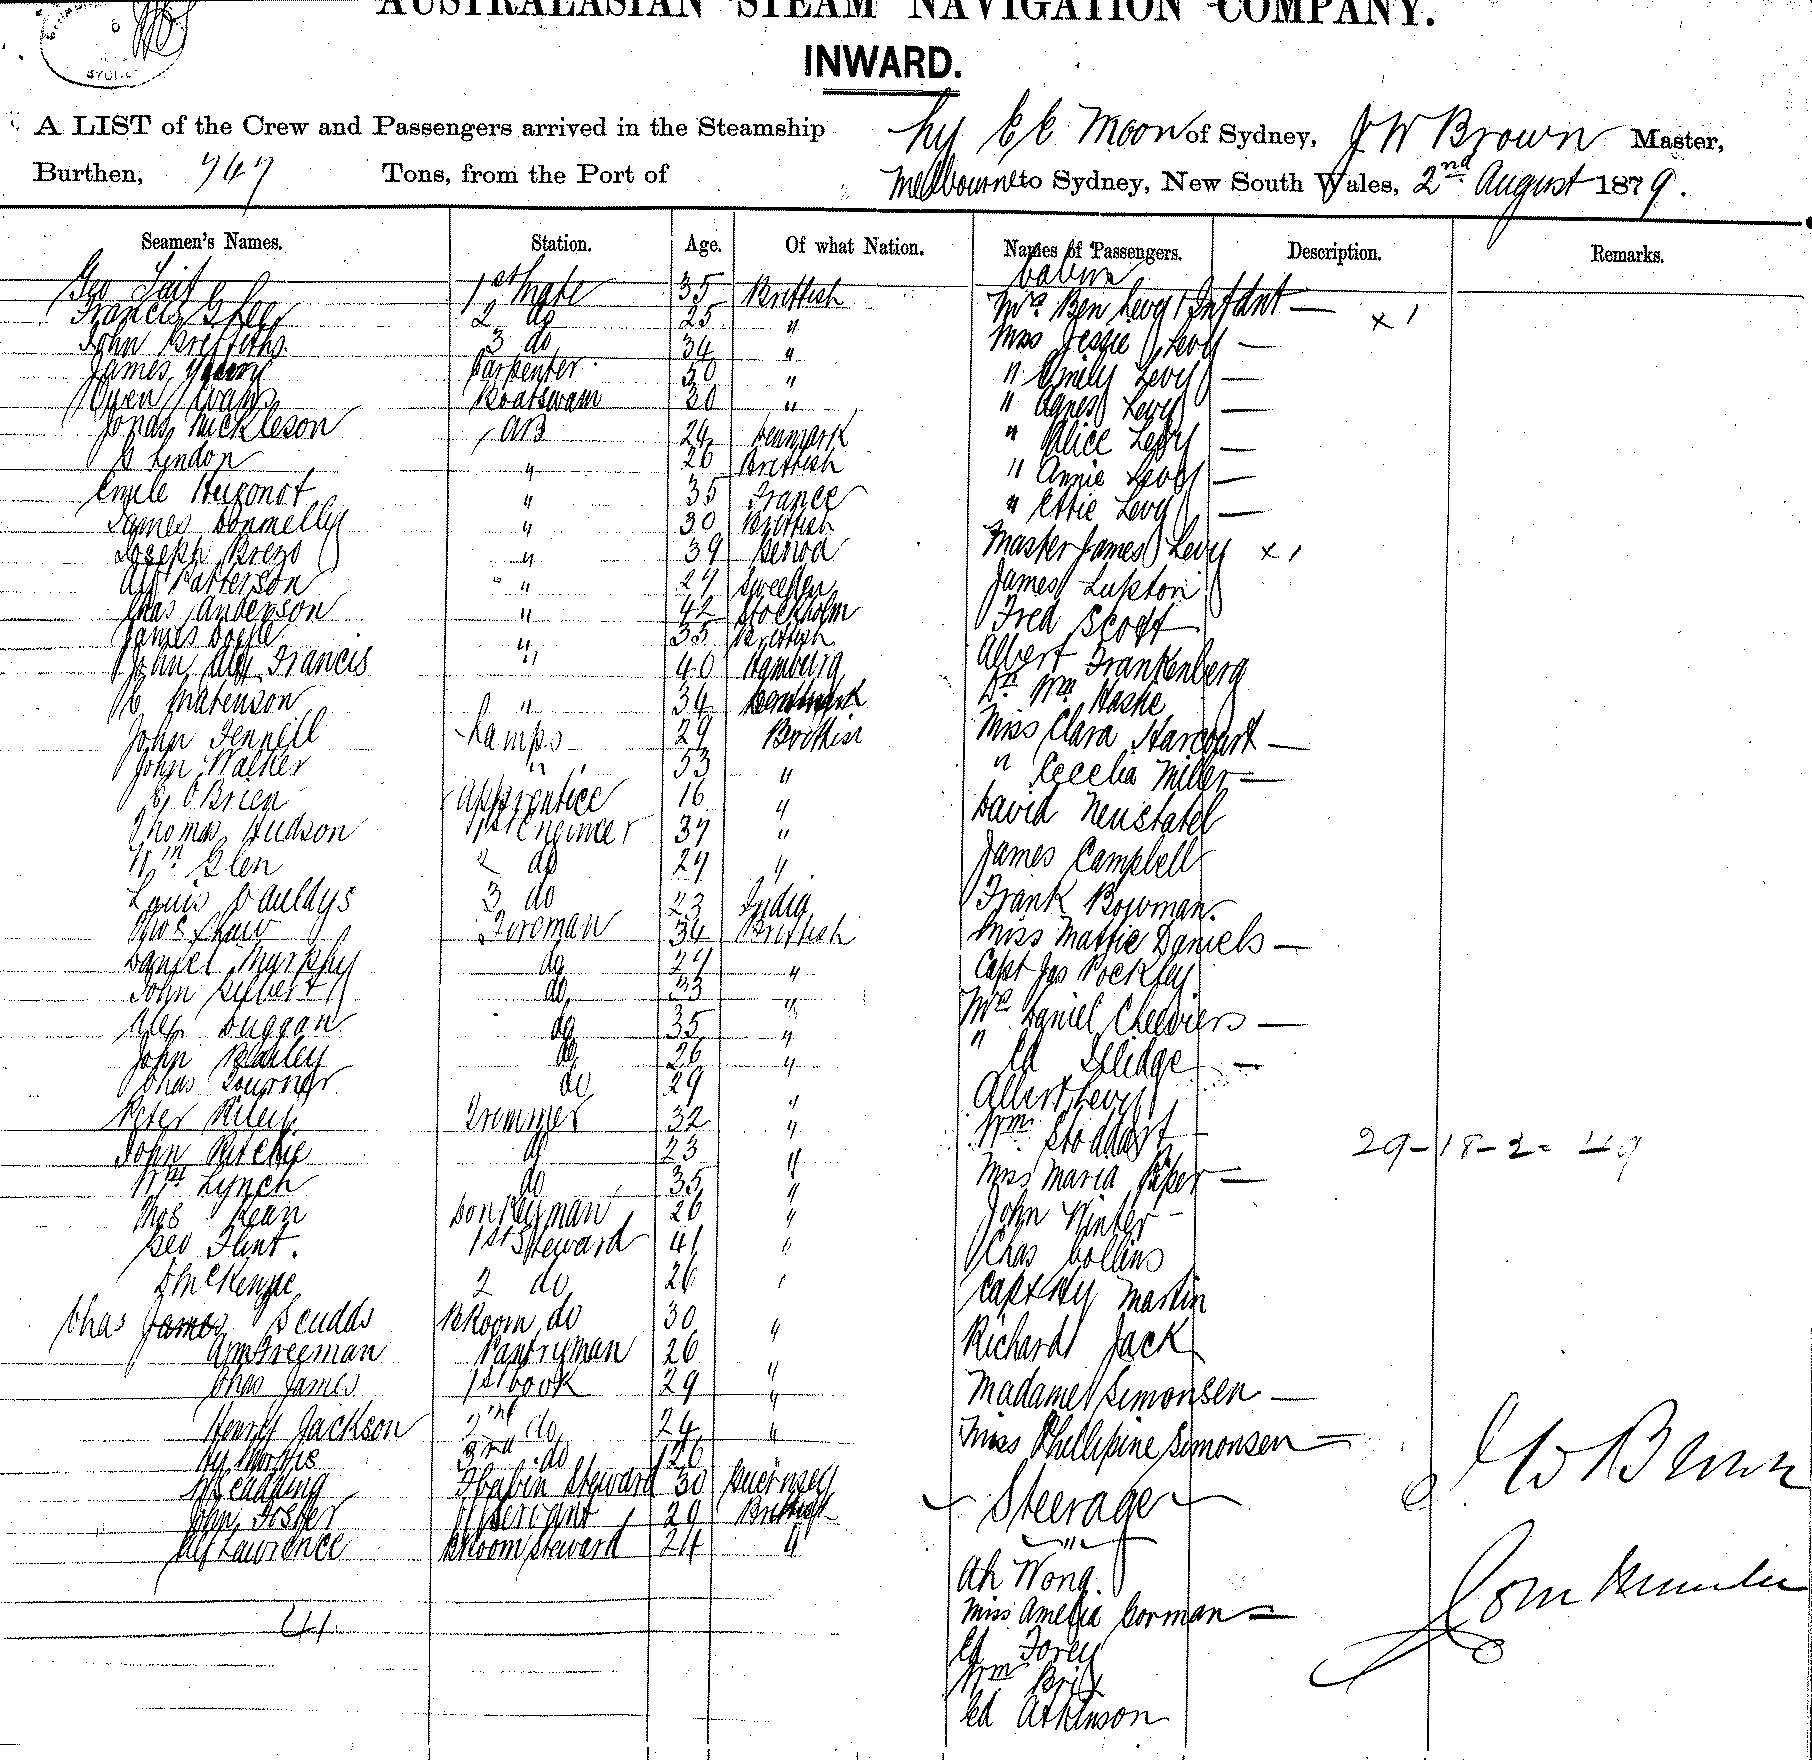 AUSTRALASIAN STEAM NAVIGATION COMPANY.
INWARD.
A LIST of the Crew and Passengers arrived in the Steamship of Sydney, J W Brown Master,
Burthen, 747 Tons, from the Port of Melbourne to Sydney, New South Wales, 2nd August 1879.
Seamen's Names. Station. Age. Of what Nation. Names of Passengers. Description. Remarks.
Cabin
Geo Tait 1st Mate 35 Brittish Mrs Ben Levy 1 Infant — x 1
Francis 2 do 25 " Miss Jessie Levy —
John Griffiths 3 do 34 " " Emily Levy —
James Carpenter 50 " " Agnes Levy —
Owen Evans Boatswain 30 " " Alice Levy —
Jonas Nickleson AB 24 Denmark " Annie Levy —
Lyndon " 26 Brittish " Ettie Levy —
Emile Hugonot " 35 France Master James Levy x 1
James Donnelly " 30 Brittish James Lupton
Joseph " 39 Fred Scott
Alf Patterson " 27 Sweeden Albert Frankenberg
Chas Anderson " 42 Stockholm Dr Wm Haske
James Doyle " 35 Brittish Miss Clara Harcourt —
John Alex Francis " 40 Hamburg " Cecelia Miller —
Matenson " 34 David Neustatel
John Fennell Lamps 29 Brittish James Campbell
John Walker " 53 " Frank Bowman.
O'Brien Apprentice 16 " Miss Mattie Daniels —
Thomas Hudson 1st Engineer 37 " Capt Jas Pockley
Wm Glen 2 do 29 " Mrs Daniel Cheeviers —
Louis Vauldys 3 do 23 India " Ed Illidge —
Thos Shaw Fireman 34 Brittish Albert Levy
Daniel Murphy do 27 " Wm Stoddart
John Gilbert do 33 " Miss Maria Piper —
Alex Duggan do 35 " John Winter
John Bailey do 26 " Chas Collins
Chas Tourner do 29 " Capt Hy Martin
Peter Riley Tremmer 32 " Richard Jack
John Ritchie do 23 " Madame Simonsen —
Wm Lynch do 35 " Miss Phillipine Simonsen —
Thos Kean Donkeyman 26 "
Geo Flint. 1st Steward 41 "
D McKenzie 2 do 26 "
Chas James Scudds B Room do 30 "
Wm Freeman Pantryman 26 "
Chas James 1st Cook 29 "
Henry Jackson 2nd do 24 "
Hy Morris 3rd do 26
Readding F Cabin Steward 30 Guernsey
John Foster Servant 29 Brittish
Alf Lawrence B Room Steward 24 "
41
29-18-2= 49
Steerage
Ah Wong.
Miss Amelia Gorman —
Ed Torey
Wm
Ed Atkinson
J W Brown